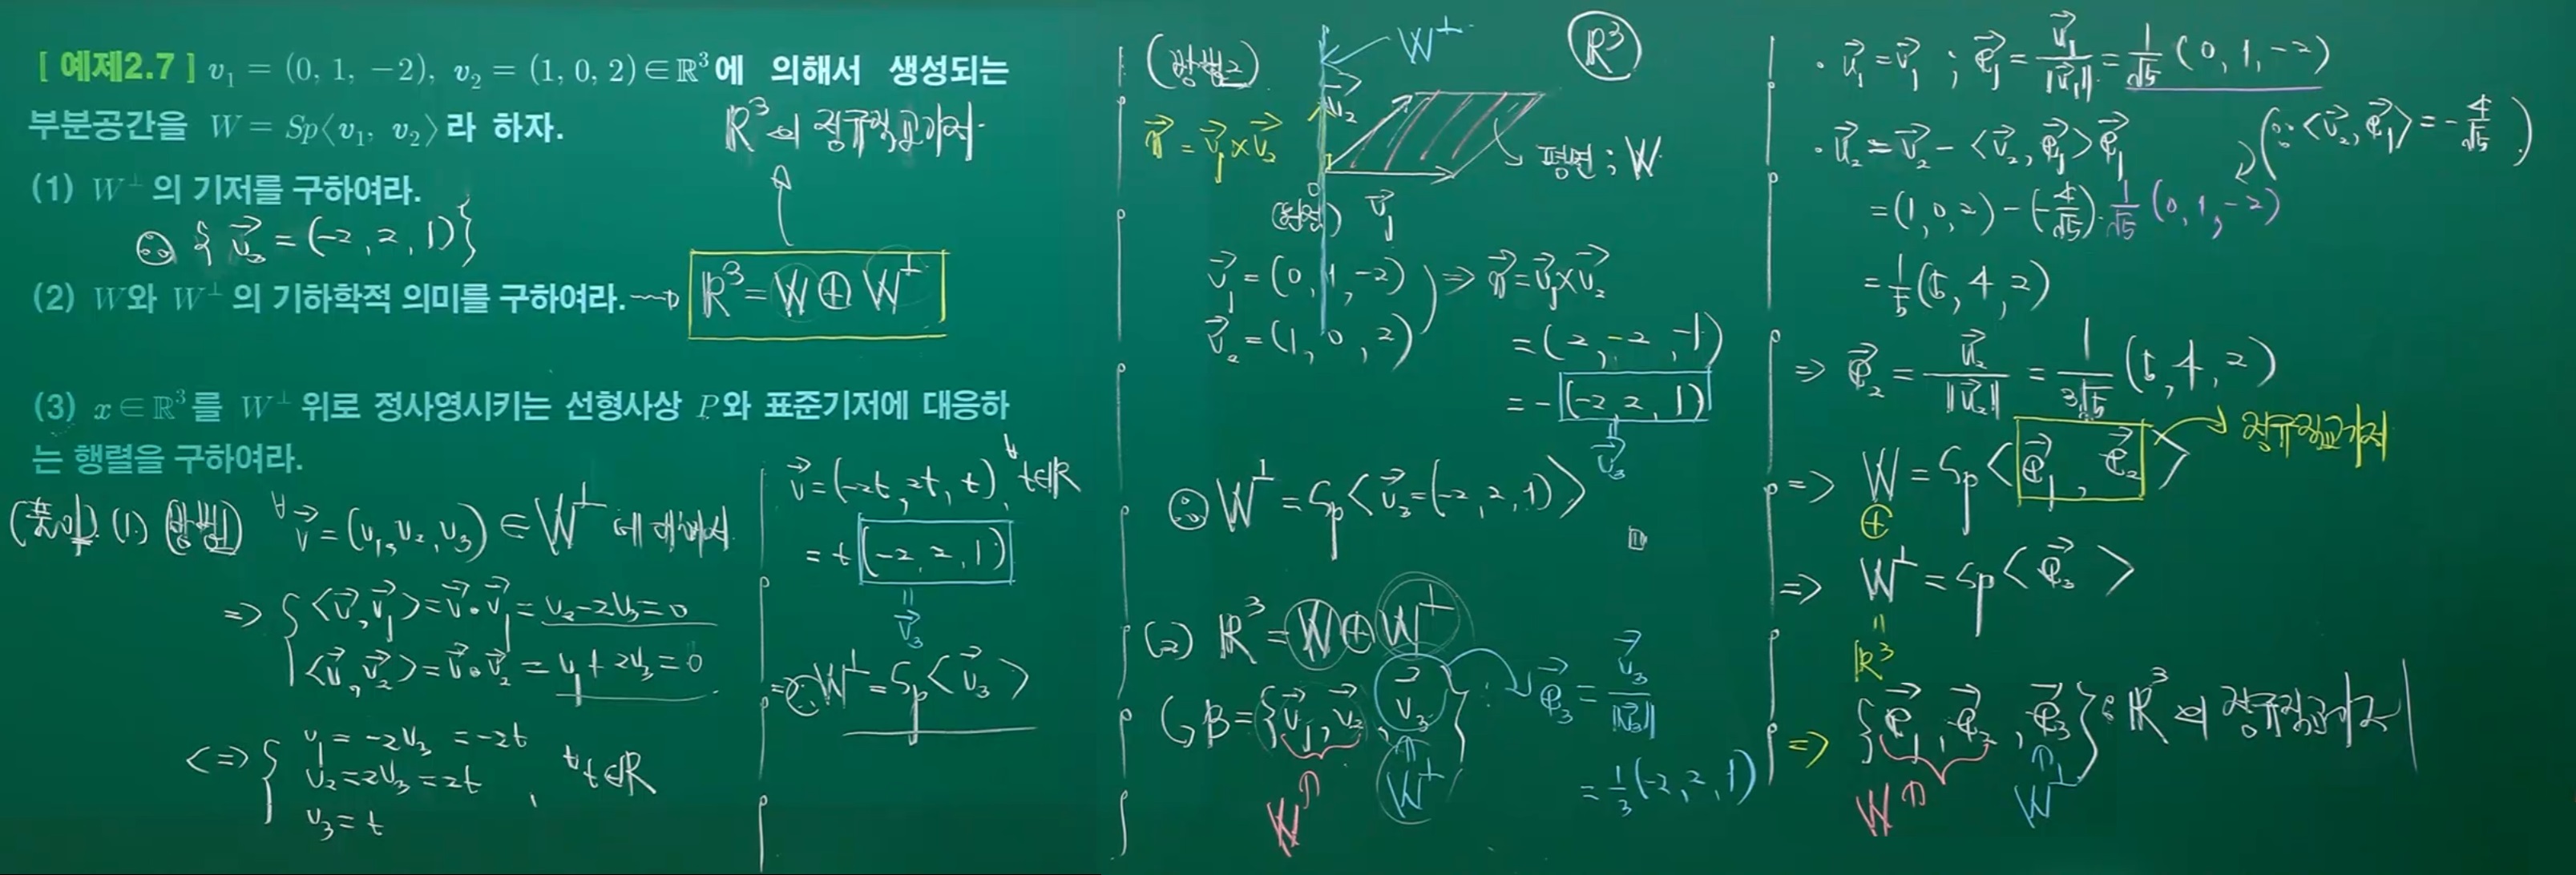 [ 예제2.7 ] v₁ = (0, 1, −2), v₂ = (1, 0, 2) ∈ ℝ³에 의해서 생성되는
부분공간을 W = Sp⟨v₁, v₂⟩라 하자.
ℝ³의 정규직교기저
(1) W^⊥의 기저를 구하여라.
∴ { v⃗₃ = (-2, 2, 1) }
(2) W와 W^⊥의 기하학적 의미를 구하여라.
ℝ³ = W ⊕ W^⊥
(3) x ∈ ℝ³를 W^⊥ 위로 정사영시키는 선형사상 P와 표준기저에 대응하
는 행렬을 구하여라.
(풀이) (1) (방법1) ∀v⃗ = (v₁, v₂, v₃) ∈ W^⊥ 에 대해서
=> { <v⃗, v⃗₁> = v⃗·v⃗₁ = v₂ - 2v₃ = 0
<v⃗, v⃗₂> = v⃗·v⃗₂ = v₁ + 2v₃ = 0
<=> { v₁ = -2v₃ = -2t
v₂ = 2v₃ = 2t , ∀t∈ℝ
v₃ = t
v⃗ = (-2t, 2t, t), ∀t∈ℝ
= t (-2, 2, 1)
=
v⃗₃
=> ∴ W^⊥ = Sp<v⃗₃>
(방법2)
W^⊥
ℝ³
n⃗ = v⃗₁ × v⃗₂
v⃗₂
평면 ; W
0
(원점)
v⃗₁
v⃗₁ = (0, 1, -2)
v⃗₂ = (1, 0, 2)
=> n⃗ = v⃗₁ × v⃗₂
= (2, -2, -1)
= - (-2, 2, 1)
=
v⃗₃
∴ W^⊥ = Sp<v⃗₃ = (-2, 2, 1)>
(2) ℝ³ = W ⊕ W^⊥
B = { v⃗₁, v⃗₂, v⃗₃ }
W
W^⊥
e⃗₃ = v⃗₃/||v⃗₃||
= 1/3 (-2, 2, 1)
· u⃗₁ = v⃗₁ ; e⃗₁ = u⃗₁/||u⃗₁|| = 1/√5 (0, 1, -2)
· u⃗₂ = v⃗₂ - <v⃗₂, e⃗₁> e⃗₁
(∵ <v⃗₂, e⃗₁> = -4/√5)
= (1, 0, 2) - (-4/√5) · 1/√5 (0, 1, -2)
= 1/5 (5, 4, 2)
=> e⃗₂ = u⃗₂/||u⃗₂|| = 1/(3√5) (5, 4, 2)
정규직교기저
=> W = Sp< e⃗₁, e⃗₂ >
⊕
=> W^⊥ = Sp< e⃗₃ >
=
ℝ³
=> { e⃗₁, e⃗₂, e⃗₃ } : ℝ³의 정규직교기저
W
W^⊥